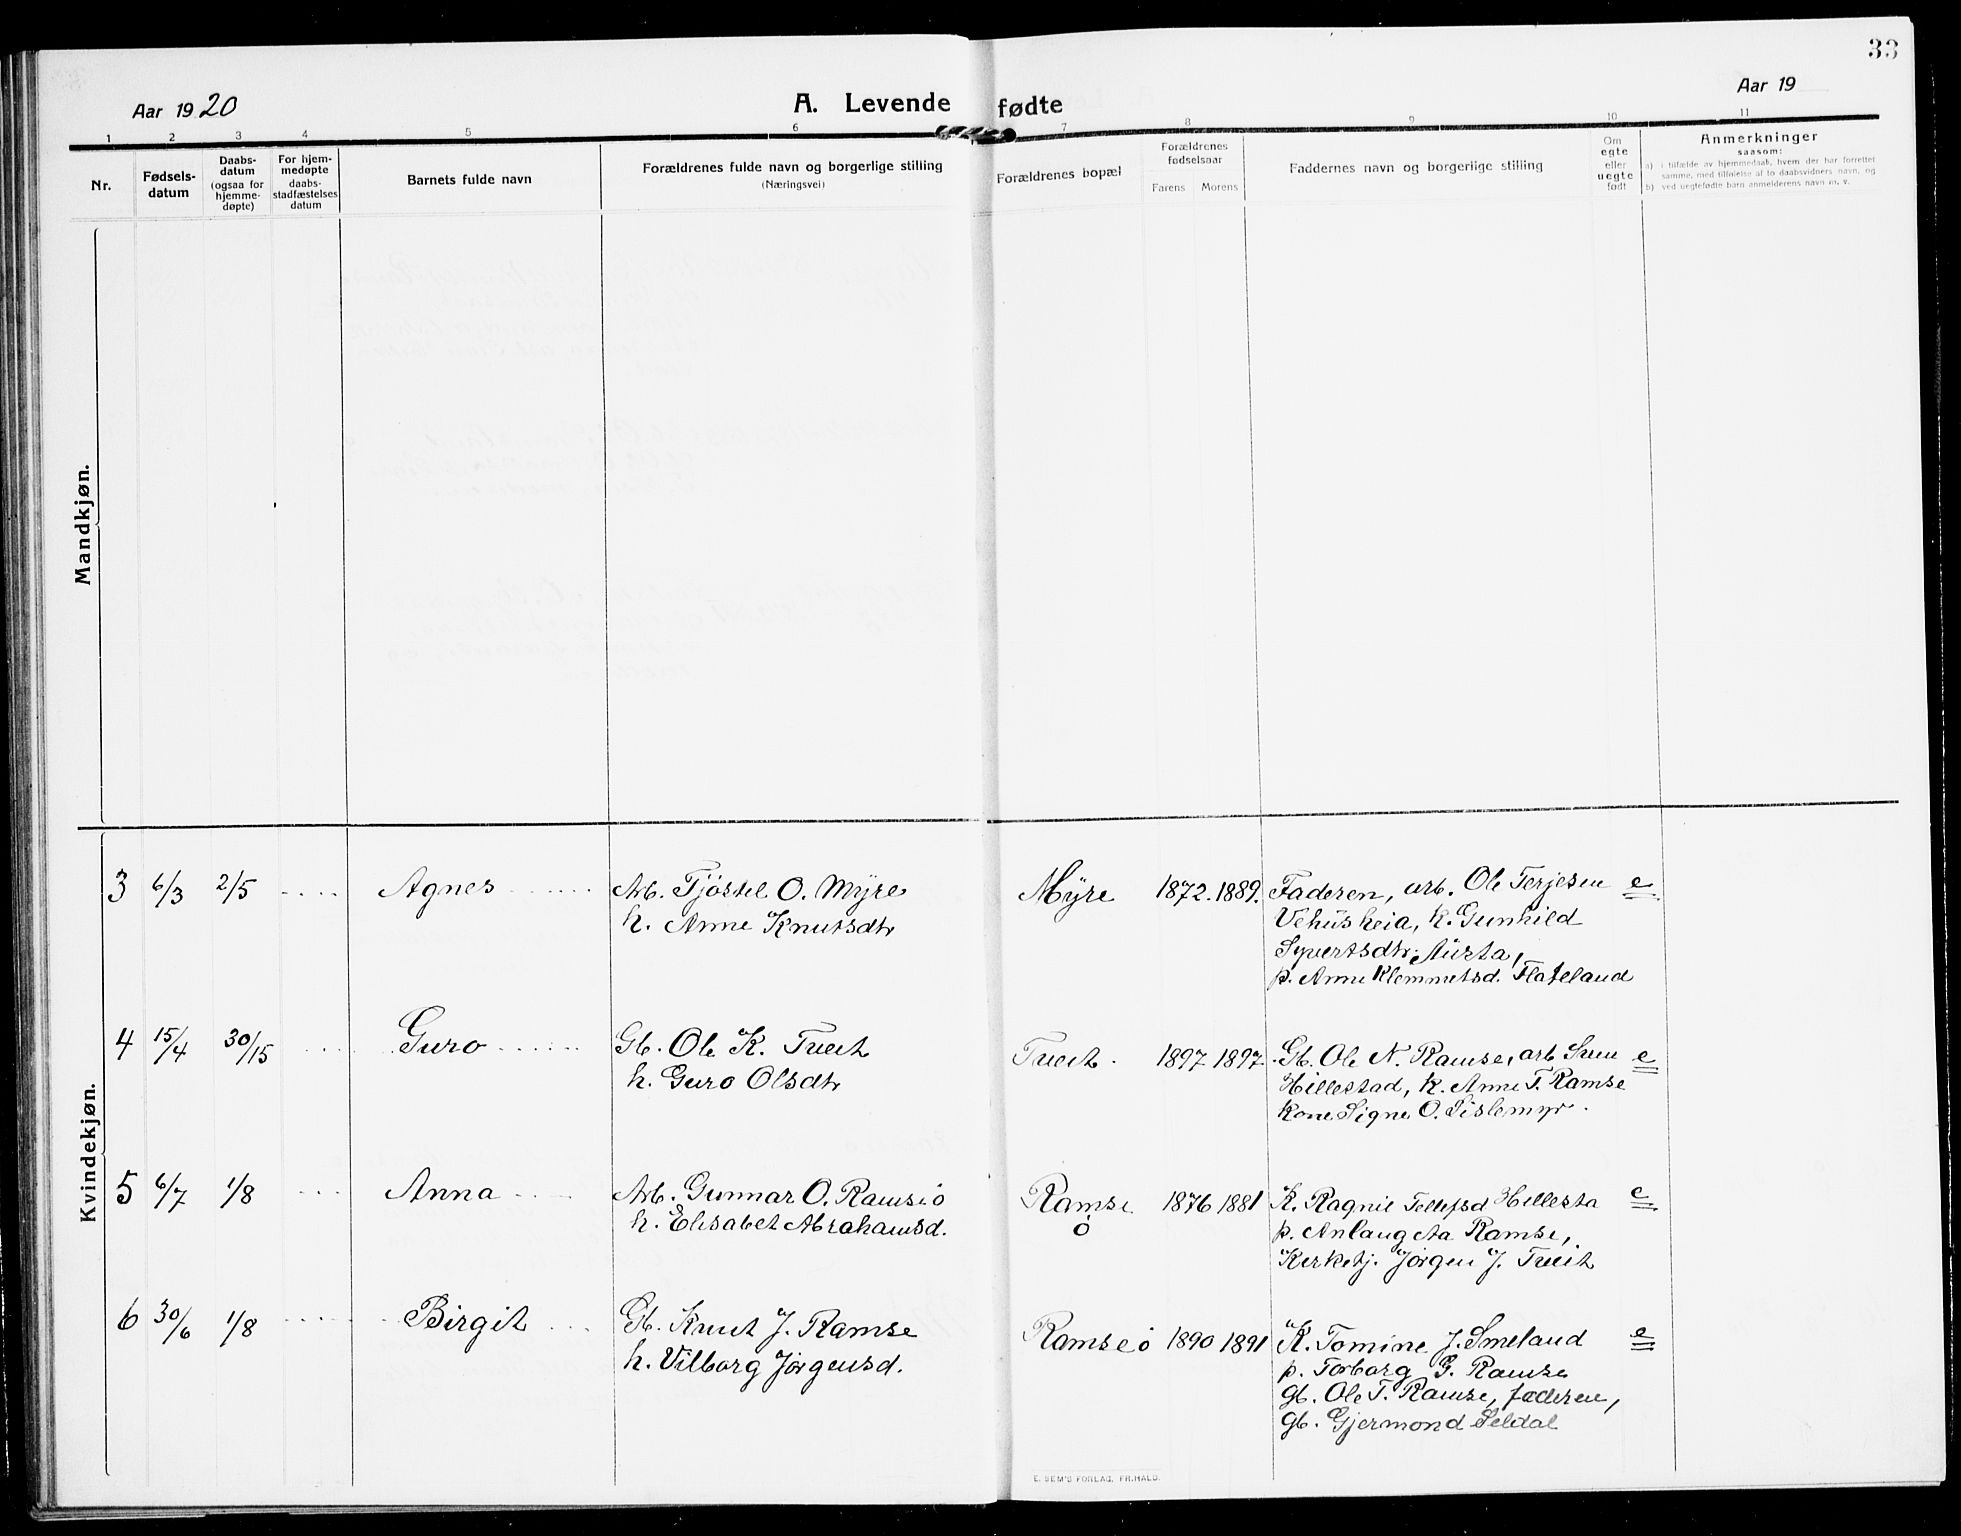 33
Aar 1920
A. Levende fødte
Aar 19
1 2 3 4 5 6 7 8 9 10 11
Nr.
Fødsels-
datum
Daabs-
datum
(ogsaa for
hjemme-
døpte)
For hjem-
medøpte
daabs-
stadfæstelses
datum
Barnets fulde navn
Forældrenes fulde navn og borgerlige stilling
(Næringsvei)
Forældrenes bopæl
Forældrenes
fødselsaar
Farens Morens
Faddernes navn og borgerlige stilling
Om
egte
eller
uegte
født
Anmerkninger
saasom:
a) i tilfælde av hjemmedaab, hvem der har forrettet
samme, med tilføielse af to daabsvidners navn, og
b) ved uegtefødte barn anmelderens navn m. v.
Mandkjøn.
Kvindekjøn.
3 6/3 2/5 Agnes Arb. Tjöstel O. Myre Myre 1872. 1889. Faderen, arb. Ole Terjesen e
h. Anne Knutsdtr Vehusheia, k. Gunhild
Syvertsdtr. Austa,
p. Anne Klemmetsd. Flateland
4 15/4 30/15 Guro Gb. Ole K. Tveit Tveit. 1897 1897. Gb. Ole N. Ramse, arb Sven e
h. Guro Olsdtr Hillestad, k. Anne T. Ramse
kone Signe O. Sislemyr.
5 6/7 1/8 Anna Arb. Gunnar O. Ramseö Ramse 1876 1881 K. Ragnil Tellefsd Hillesta e
h. Elisabet Abrahamsd. ö p. Anlaug Aa Ramse,
Kirketj. Jörgen J. Tveit
6 30/6 1/8 Birgit Gb. Knut J. Ramse Ramseö 1890 1891 K. Tomine J. Smeland e
h. Vilborg Jörgensd. p. Torborg G. Ramse
gb. Ole T. Ramse, faderen,
gb. Gjermond Seldal
E. SEM'S FORLAG, FR.HALD.